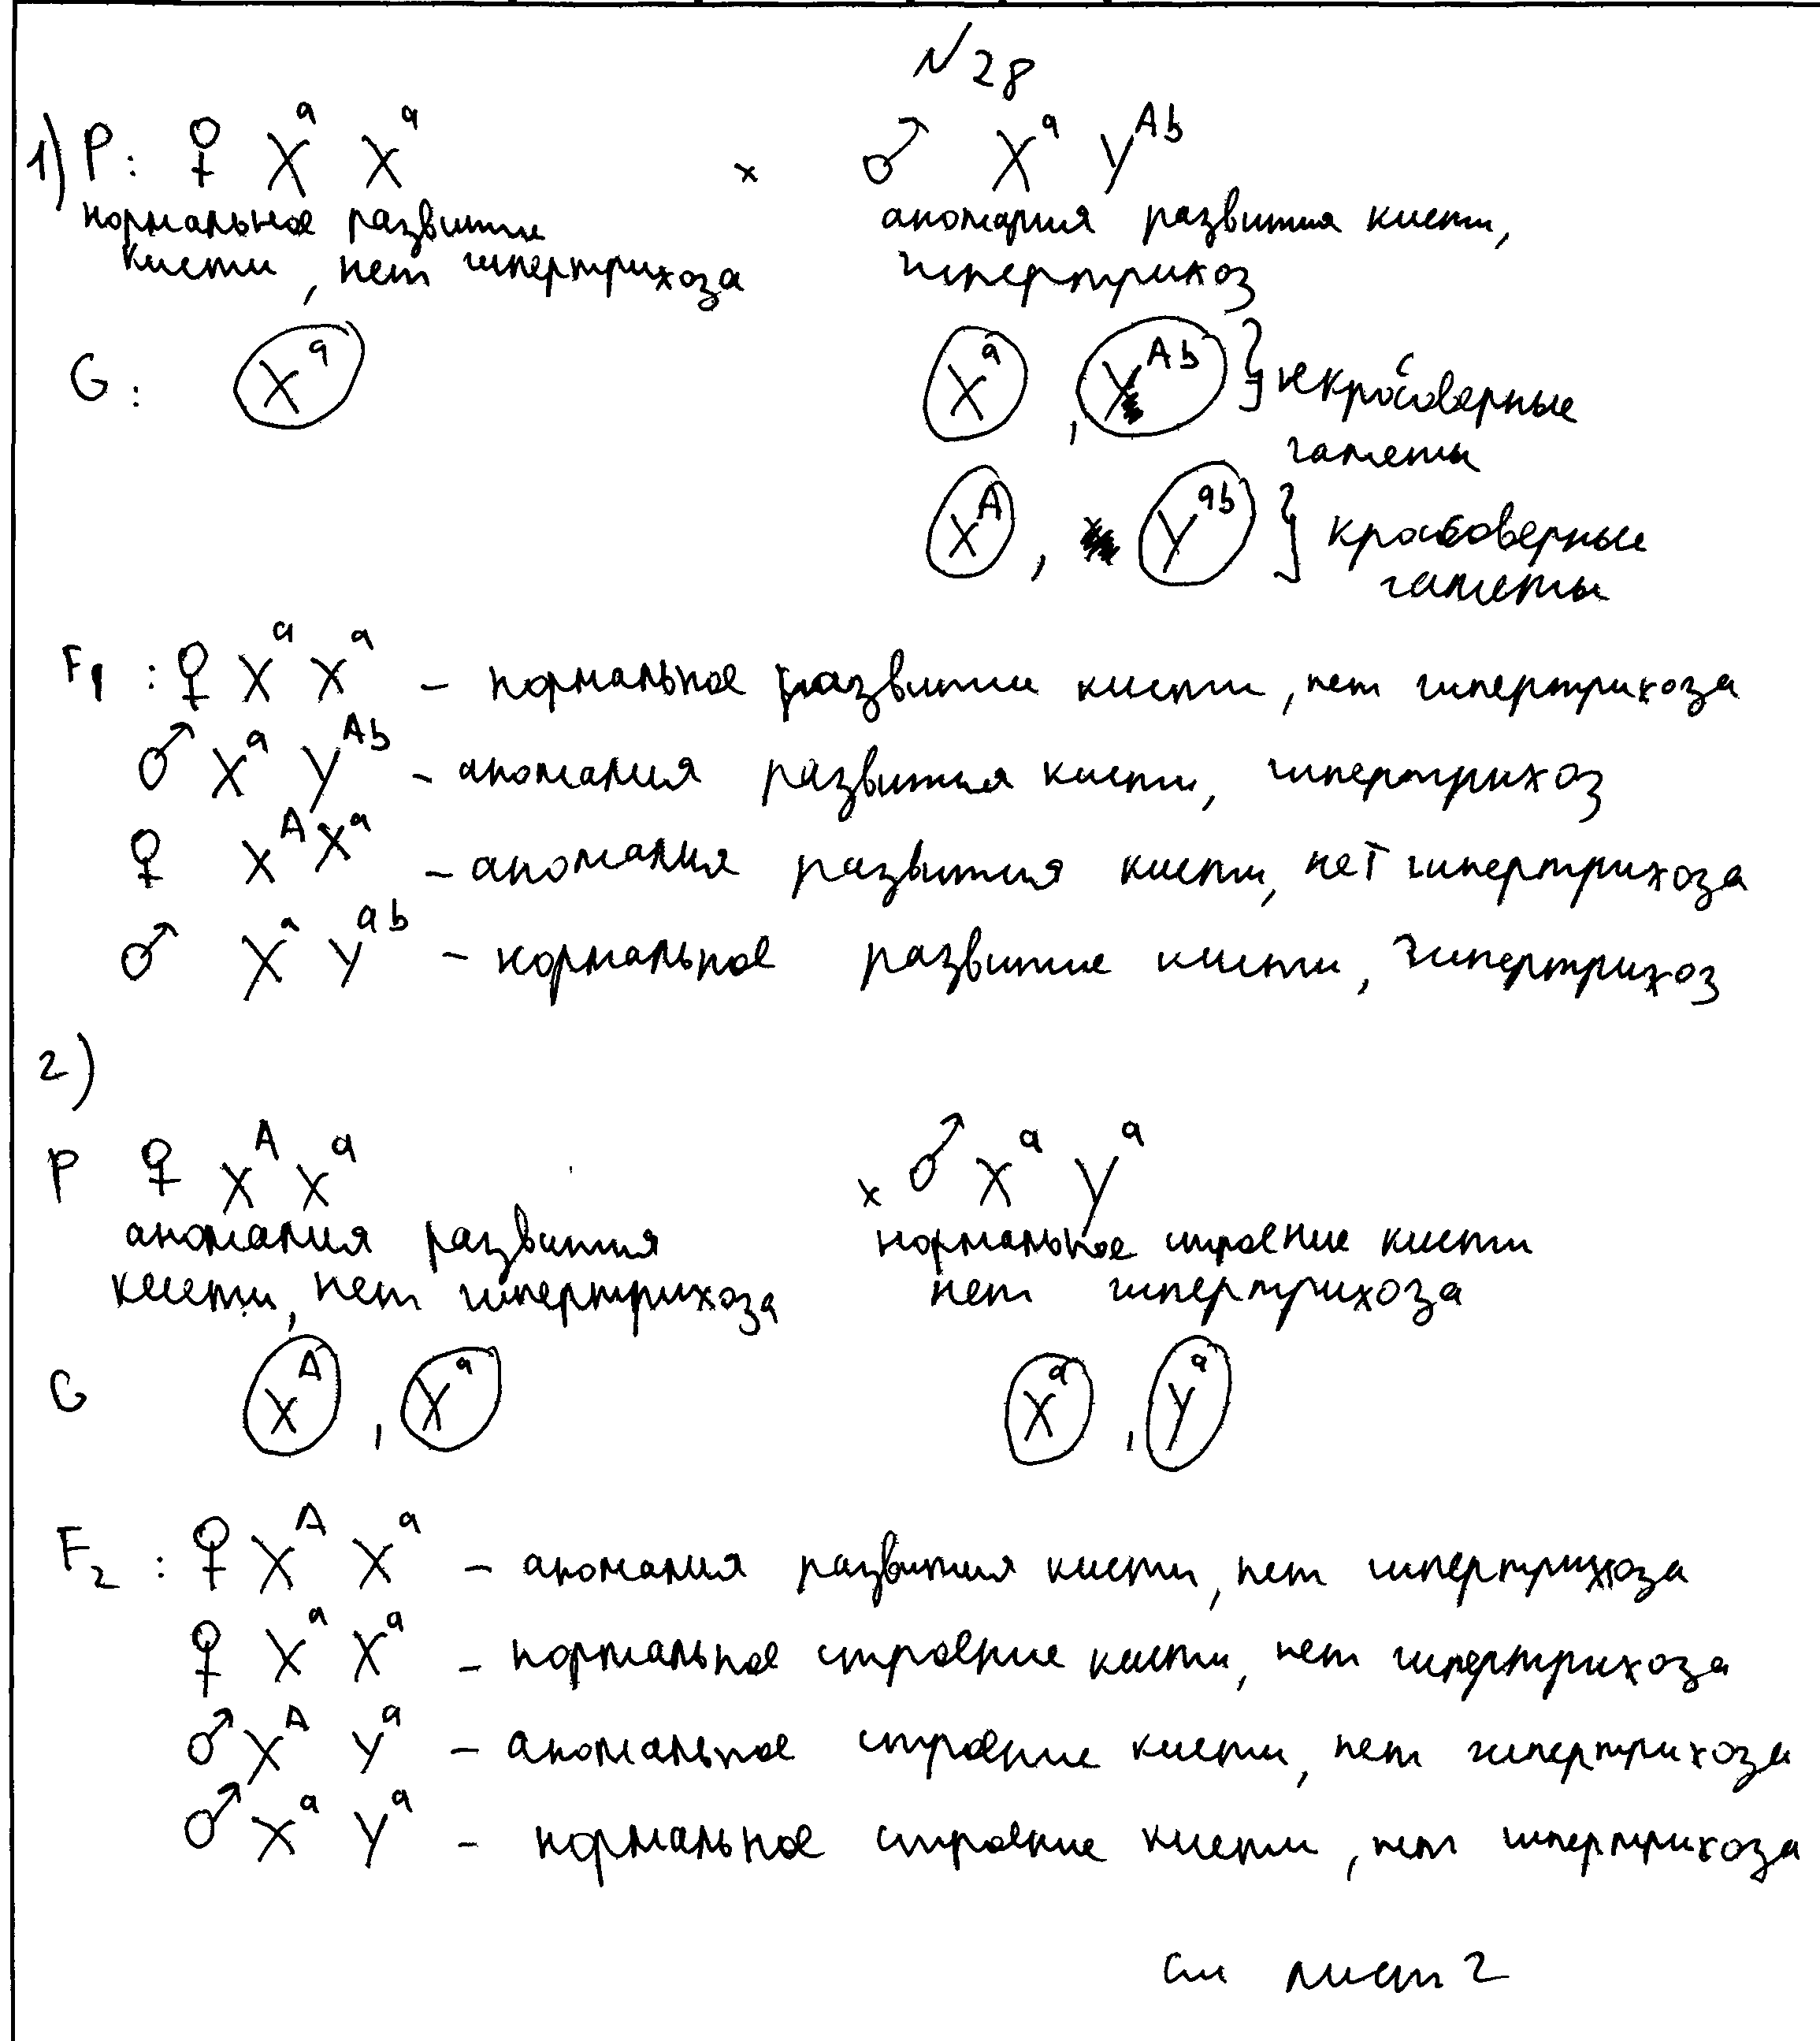 №28
1) P: ♀ X^a X^a × ♂ X^a Y^Ab
нормальное развитие аномалия развития кисти,
кисти, нет гипертрихоза гипертрихоз
G: X^a X^a, Y^Ab } некроссоверные
гаметы
X^A, Y^ab } кроссоверные
гаметы
F1: ♀ X^a X^a – нормальное развитие кисти, нет гипертрихоза
♂ X^a Y^Ab – аномалия развития кисти, гипертрихоз
♀ X^A X^a – аномалия развития кисти, нет гипертрихоза
♂ X^a Y^ab – нормальное развитие кисти, гипертрихоз
2)
P ♀ X^A X^a × ♂ X^a Y^a
аномалия развития нормальное строение кисти
кисти, нет гипертрихоза нет гипертрихоза
G X^A, X^a X^a, Y^a
F2: ♀ X^A X^a – аномалия развития кисти, нет гипертрихоза
♀ X^a X^a – нормальное строение кисти, нет гипертрихоза
♂ X^A Y^a – аномальное строение кисти, нет гипертрихоза
♂ X^a Y^a – нормальное строение кисти, нет гипертрихоза
см лист 2